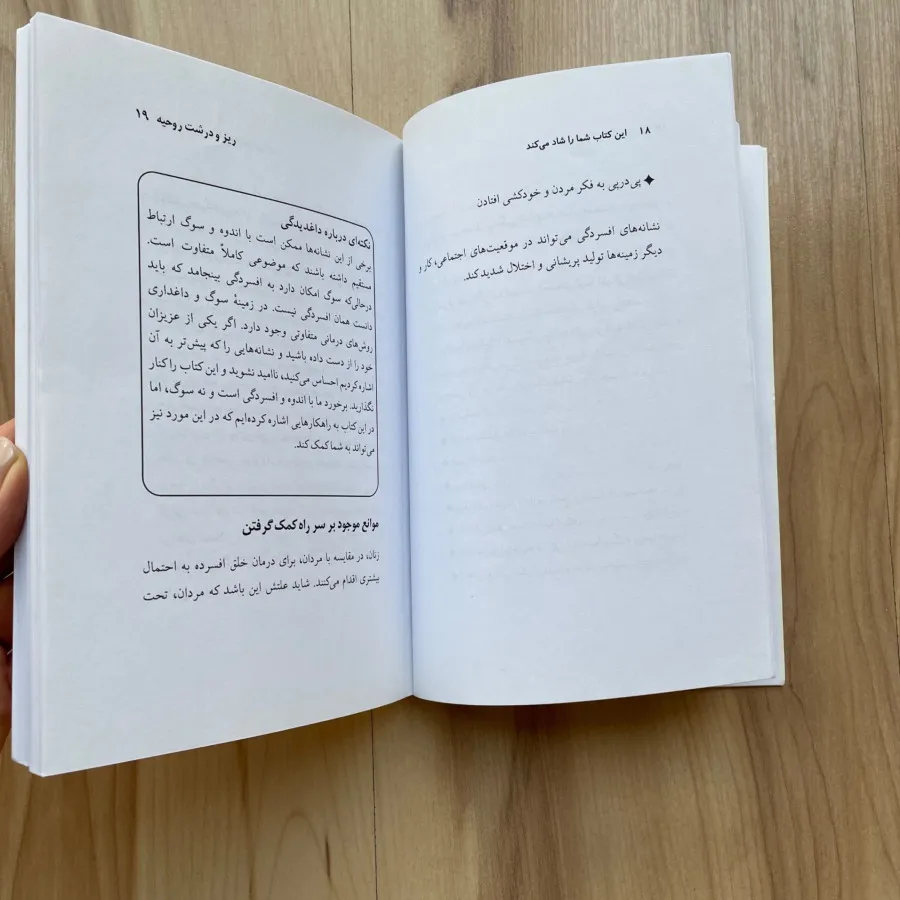 ۱۸ این کتاب شما را شاد می‌کند
✦ پی‌درپی به فکر مردن و خودکشی افتادن
نشانه‌های افسردگی می‌تواند در موقعیت‌های اجتماعی، کار و
دیگر زمینه‌ها تولید پریشانی و اختلال شدید کند.
ریز و درشت روحیه ۱۹
نکته‌ای درباره داغدیدگی
برخی از این نشانه‌ها ممکن است با اندوه و سوگ ارتباط
مستقیم داشته باشند که موضوعی کاملاً متفاوت است.
درحالی‌که سوگ امکان دارد به افسردگی بینجامد که باید
دانست همان افسردگی نیست. در زمینهٔ سوگ و داغداری
روش‌های درمانی متفاوتی وجود دارد. اگر یکی از عزیزان
خود را از دست داده باشید و نشانه‌هایی را که پیش‌تر به آن
اشاره کردیم احساس می‌کنید، ناامید نشوید و این کتاب را کنار
نگذارید. برخورد ما با اندوه و افسردگی است و نه سوگ، اما
در این کتاب به راهکارهایی اشاره کرده‌ایم که در این مورد نیز
می‌تواند به شما کمک کند.
موانع موجود بر سر راه کمک گرفتن
زنان، در مقایسه با مردان، برای درمان خلق افسرده به احتمال
بیشتری اقدام می‌کنند. شاید علتش این باشد که مردان، تحت